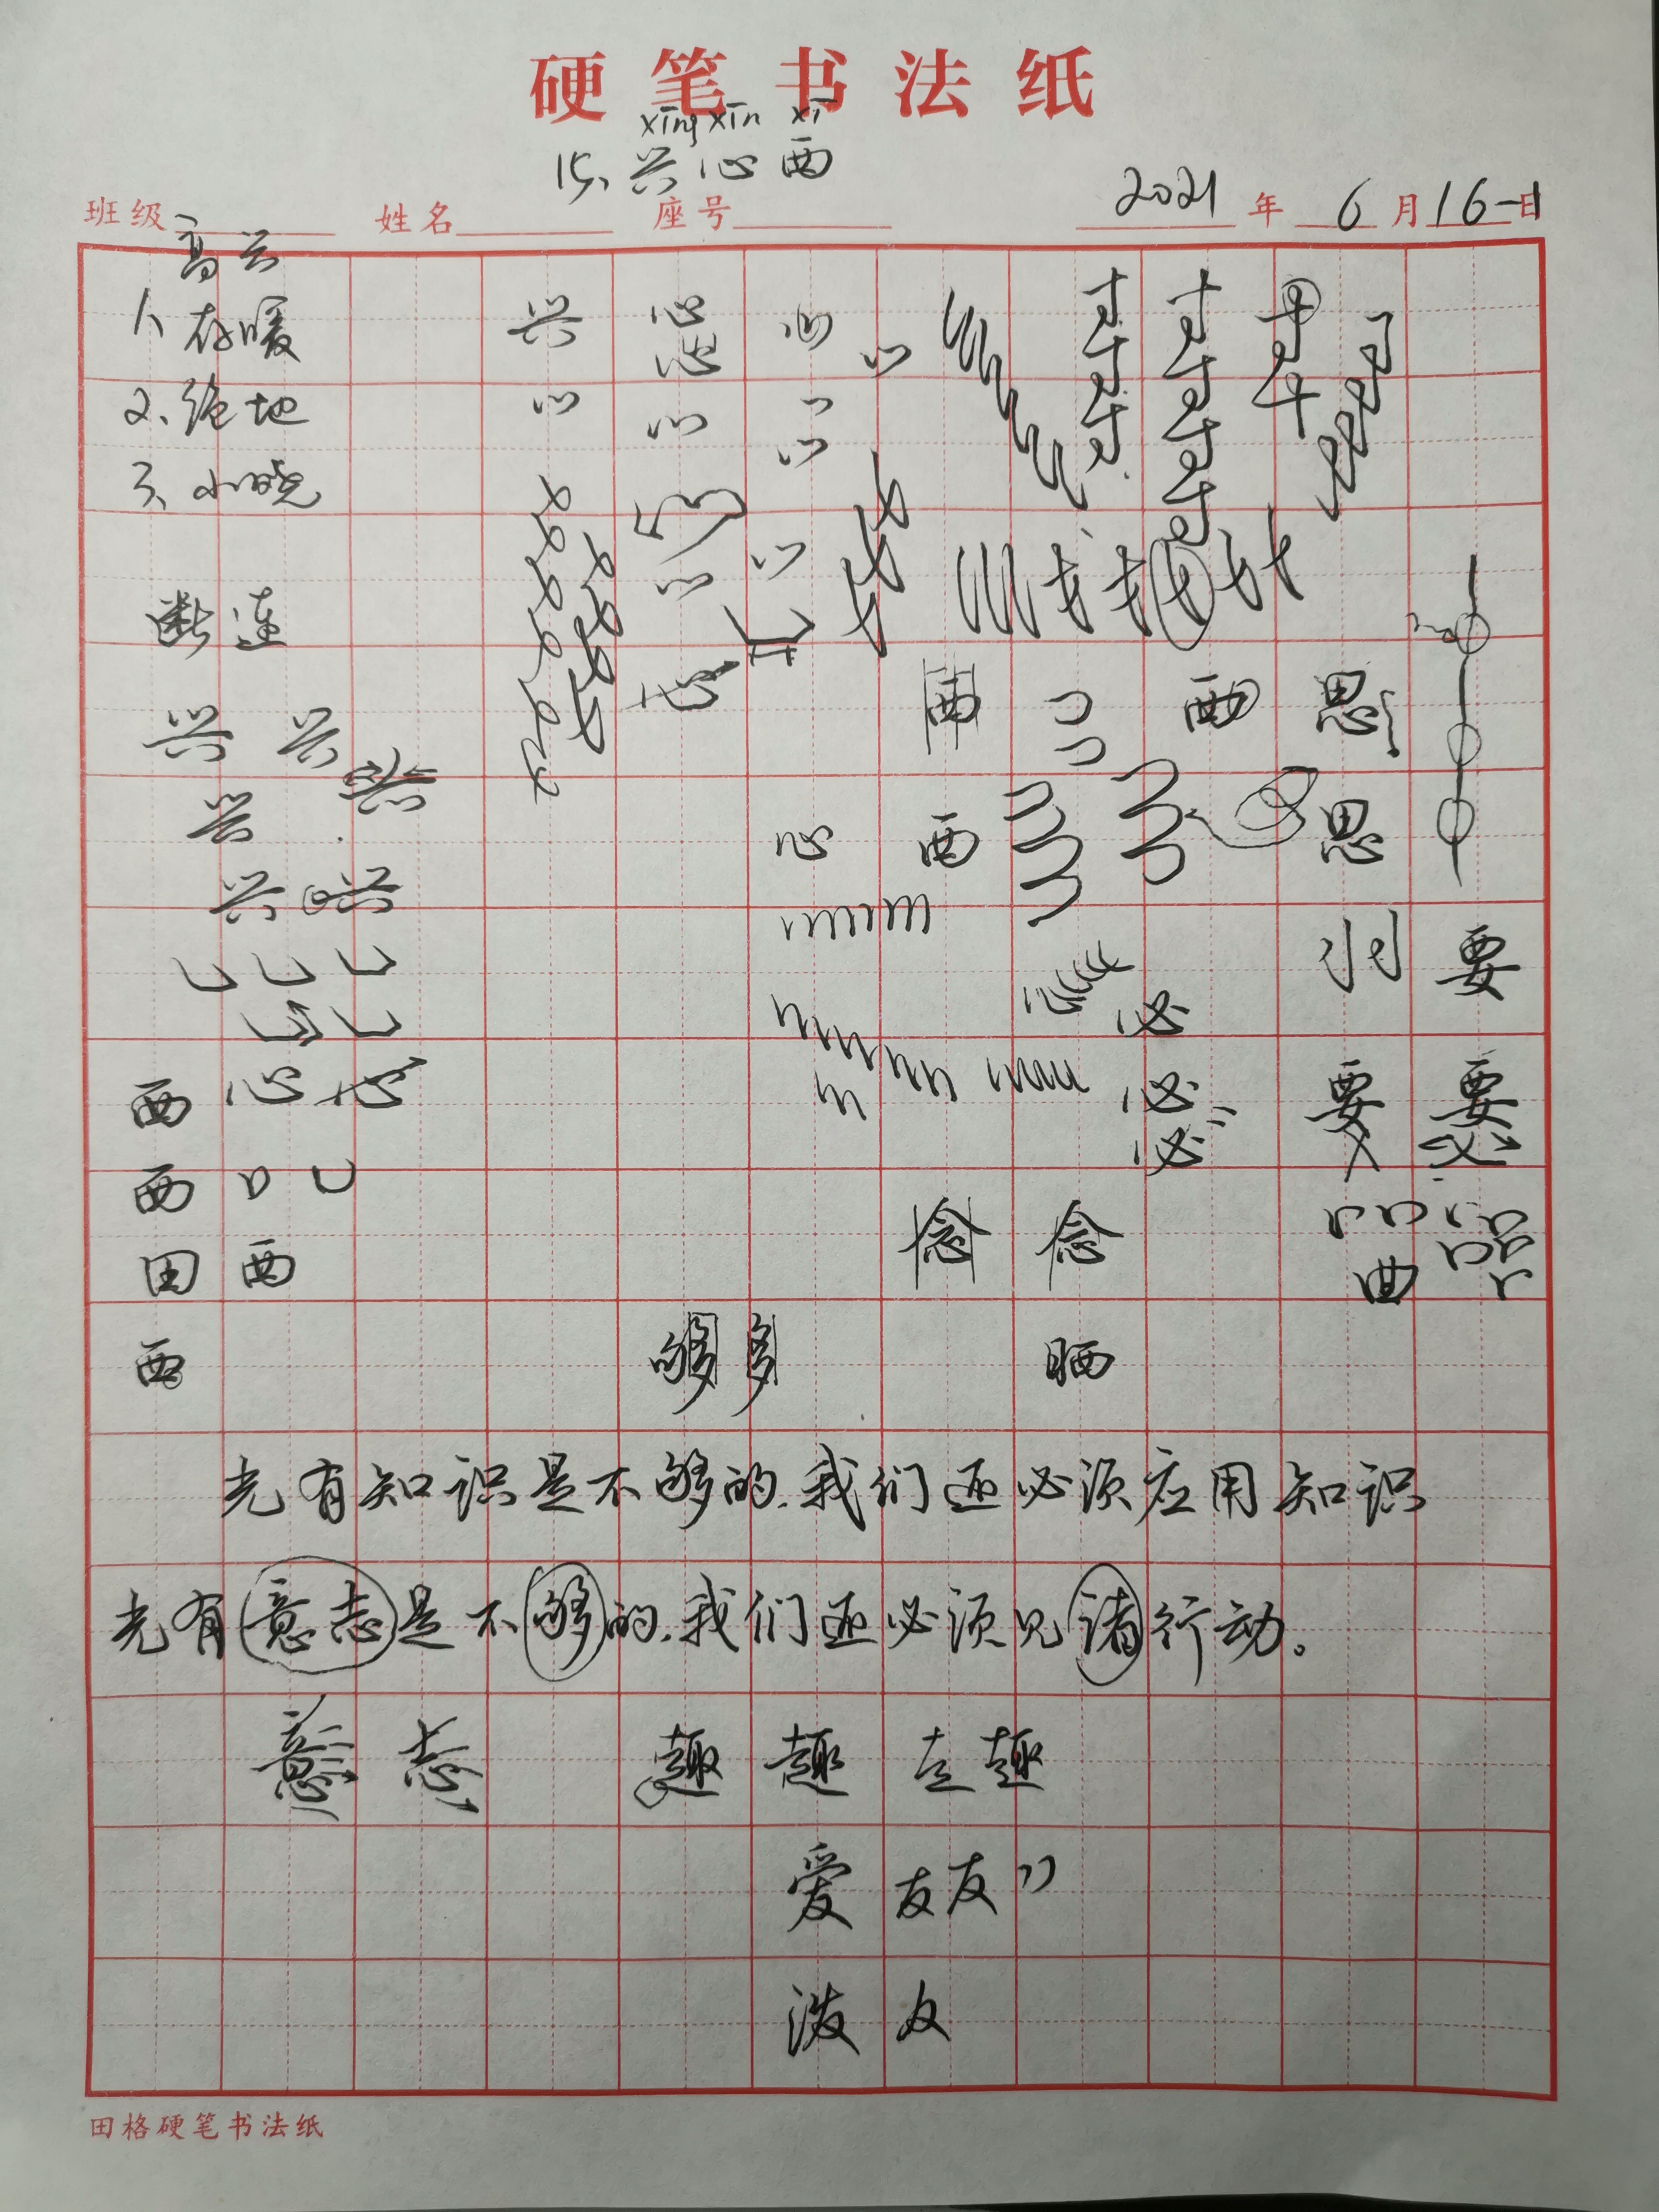 硬笔书法纸
xīng xīn xī
15、兴心西
班级 姓名 座号 2021年6月16日
高兴
1、存暖
2、绝地
3、小晓
兴 心
断连
兴 兴
西 西 思
兴
心 西 思
兴 兴
要
必
西 心 心
必 要 要
必
西
念 念
田 西
曲
西 够 多 晒
光有知识是不够的.我们还必须应用知识
光有意志是不够的.我们还必须见诸行动。
意 志 趣 趣 走 趣
爱 友 友
泼 友
田格硬笔书法纸